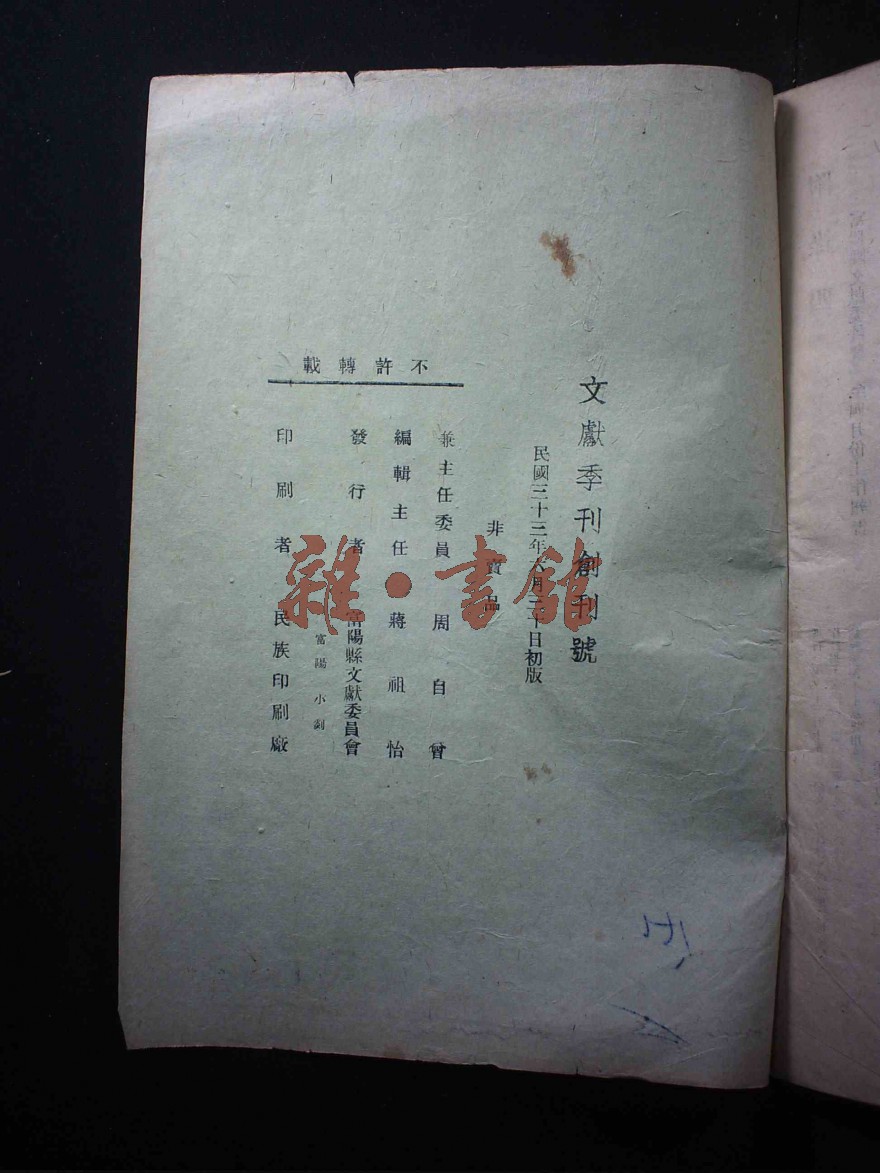 文獻季刊創刊號
民國三十三年六月三十日初版
非賣品
兼主任委員 周自曾
編輯主任 蔣祖怡
發行者 富陽縣文獻委員會
富陽 水
印刷者 民族印刷廠
不許轉載
雜·書館